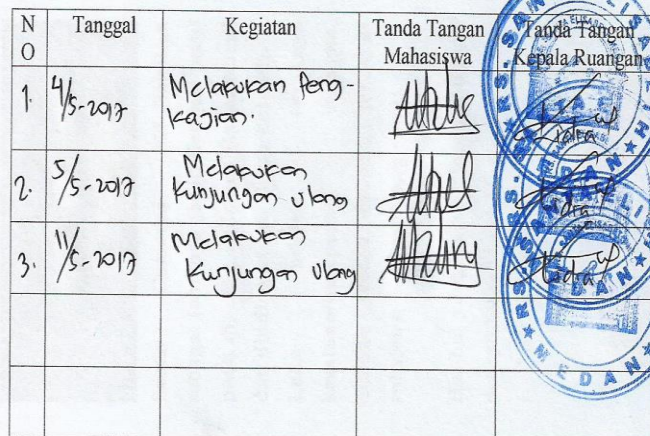 N
O
Tanggal
Kegiatan
Tanda Tangan
Mahasiswa
Tanda Tangan
Kepala Ruangan
1. 4/5-2017 Melakukan Peng-
kajian.
2. 5/5-2017 Melakukan
Kunjungan ulang
3. 11/5-2017 Melakukan
Kunjungan ulang
RS. SANTA ELISABETH
MEDAN